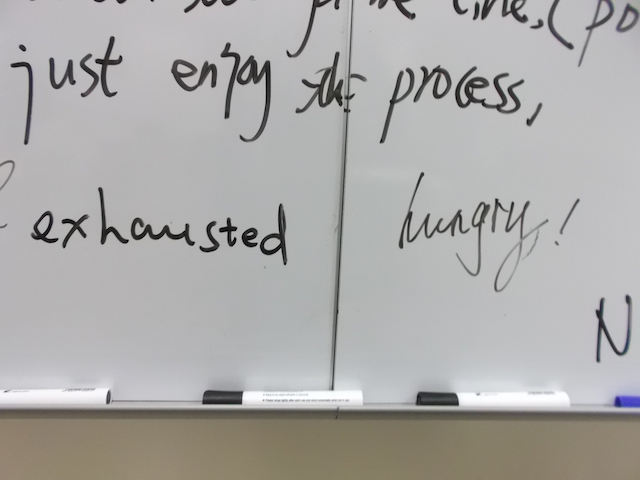 line, (po
just enjoy the process,
exhausted hungry!
N